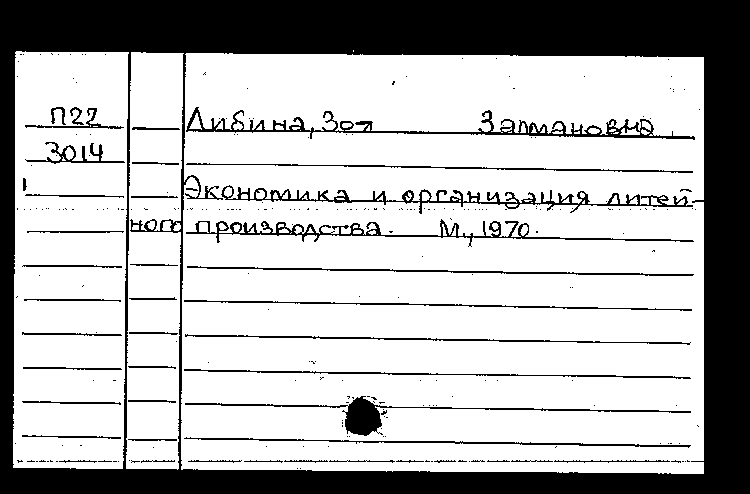 П22 Либина, Зоя Залмановна
3014
Экономика и организация литей-
ного производства. М., 1970.